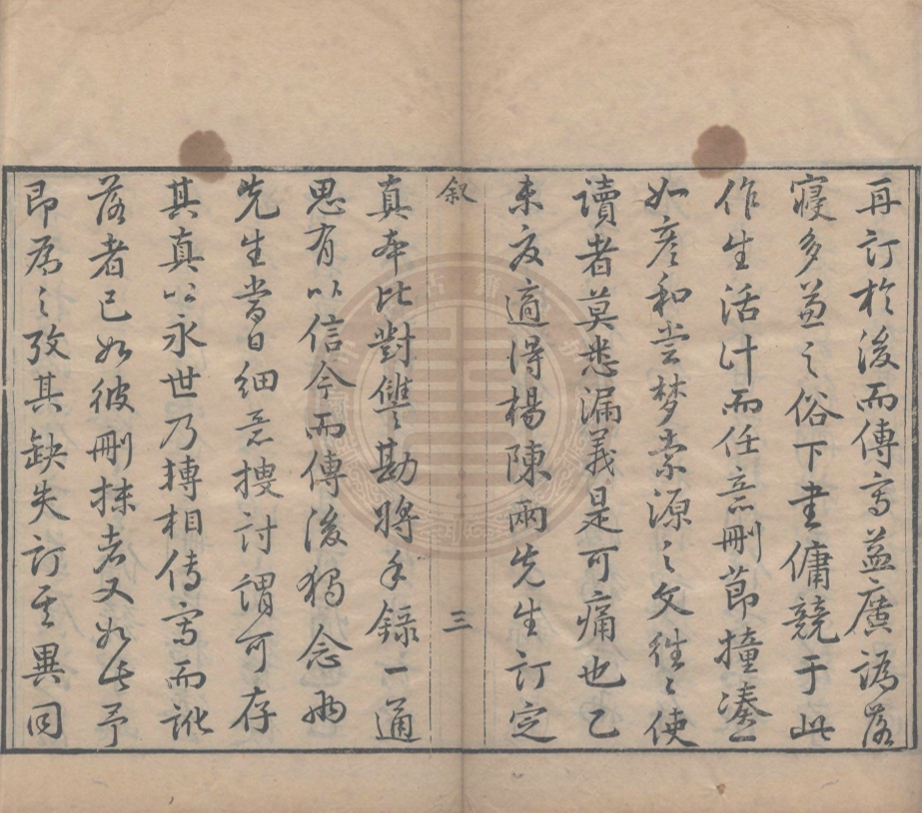 再訂於後而傳寫益廣譌落
寖多兼之俗下書傭競于此
作生活計而任意刪節撞湊
如彥和尝梦索源之文徃〻使
讀者莫悉漏義是可痛也乙
未友適得楊陳兩先生訂定
叙
三
真本比對讎勘將手錄一通
思有以信今而傳後獨念兩
先生當日細意搜討謂可存
其真以永世乃轉相传寫而訛
落者已如彼刪抹者又如此予
即為之攷其缺失訂其異同